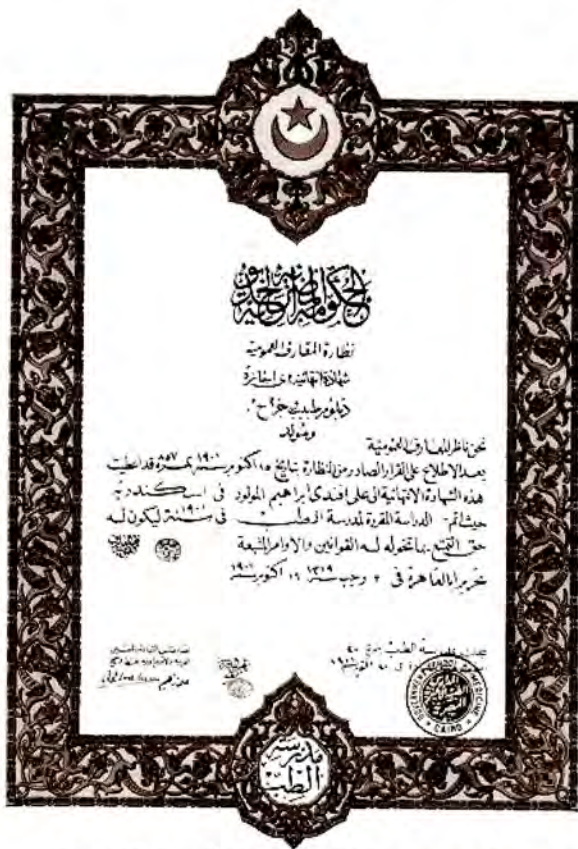 الحكومة المصرية الخديوية
نظارة المعارف العمومية
شهادة انتهائية اى اجازة
دبلوم طبيب جراح
ومولد
نحن ناظر المعارف العمومية
بعد الاطلاع على القرار الصادر من النظارة بتاريخ ١٥ اكتوبر سنة ١٩٠١ نمرة ٨٥٧ قد اعطيت
هذه الشهادة الانتهائية الى على افندى ابراهيم المولود فى اسكندرية
حيث اتم الدراسة المقررة لمدرسة الطب فى سنة ١٩٠١ ليكون له
حق التمتع بما تخوله له القوانين والاوامر المتبعة
تحريرا بالقاهرة فى ٣ رجب سنة ١٣١٩ ١٦ اكتوبر سنة ١٩٠١
مدرسة الطب نمرة ٤٠
GOVERNMENT SCHOOL OF MEDICINE
CAIRO
مدرسة الطب